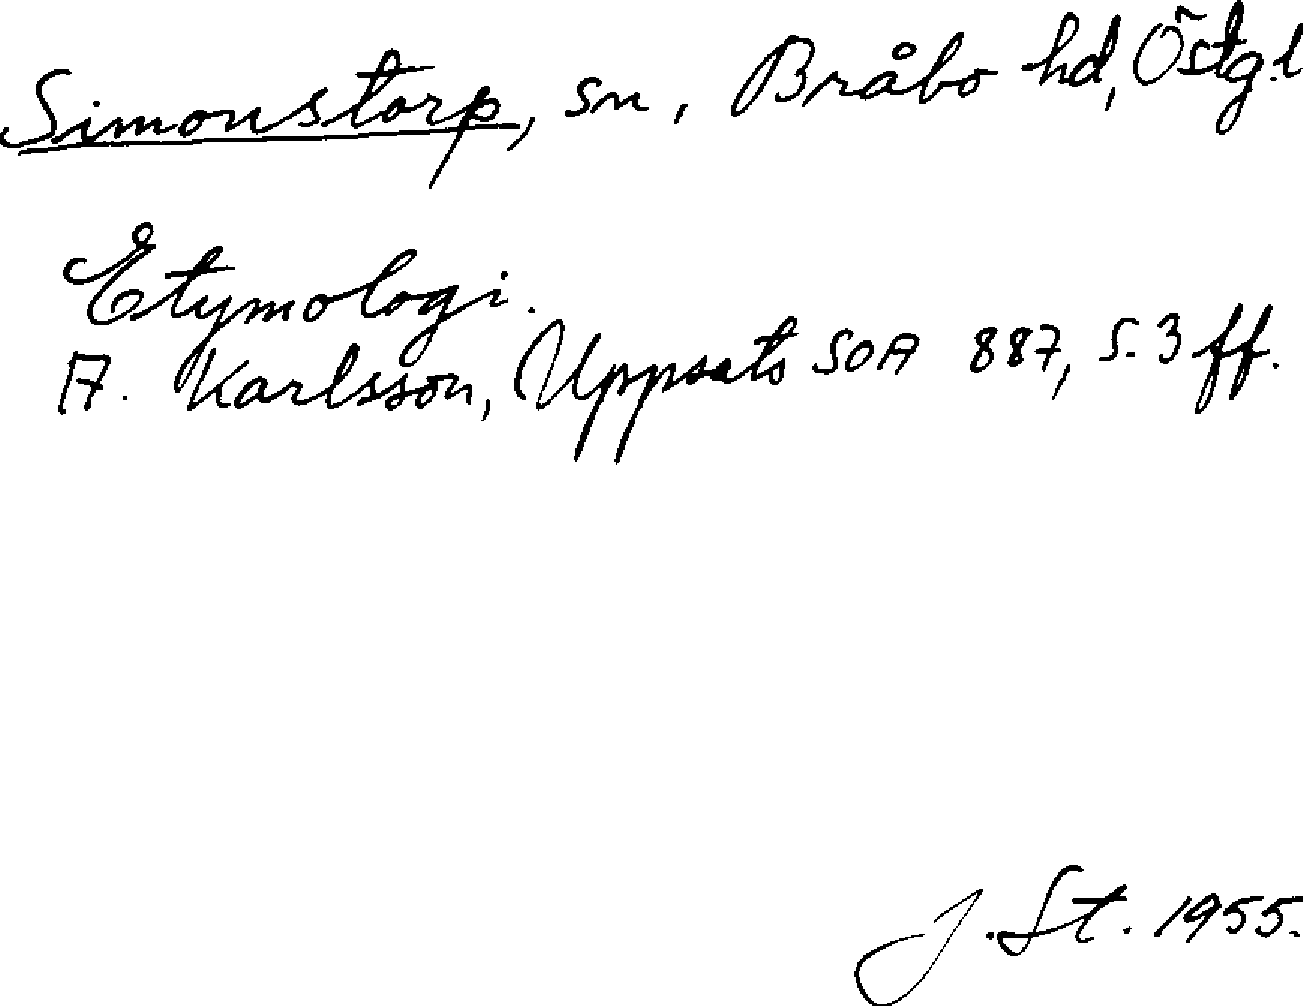 Simonstorp, sn, Bråbo hd, Östg.l
Etymologi.
A. Karlsson, Uppsats SOA 887, s. 3 ff.
J. St. 1955.